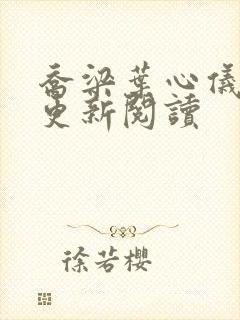 喬梁葉心儀
更新閱讀
徐若櫻